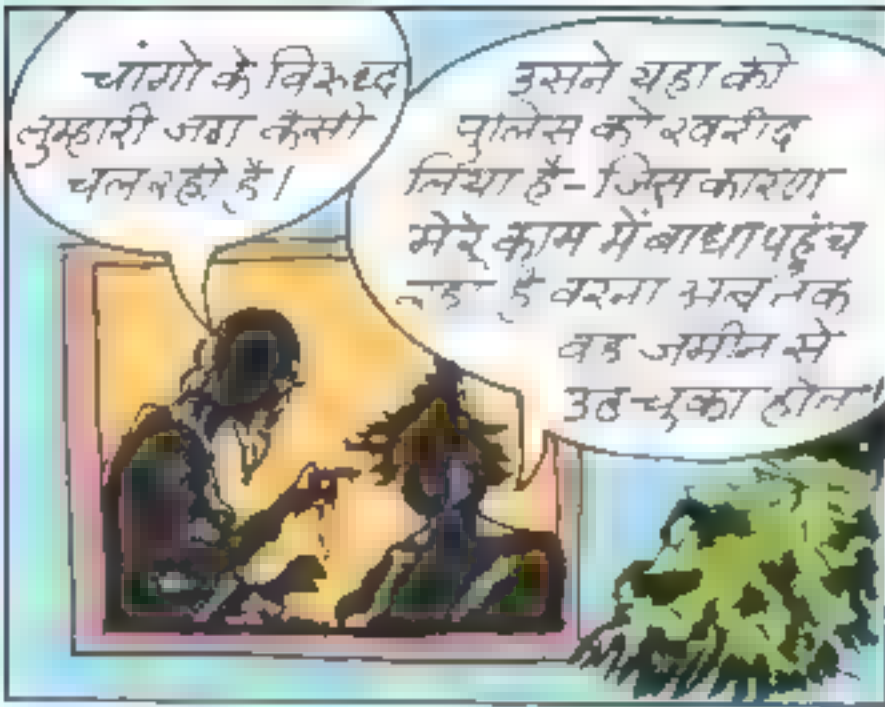 चांगो के विरुध्द
तुम्हारी जंग कैसी
चल रही है।
उसने यहा की
पुलिस को खरीद
लिया है-जिस कारण
मेरे काम में बाधा पहुंच
है वरना अब तक
वह जमीन से
उठ चुका होता